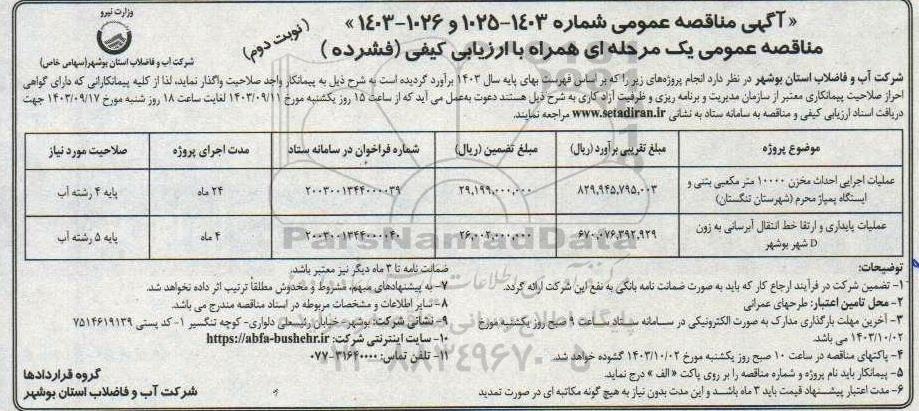 وزارت نیرو
شرکت آب و فاضلاب استان بوشهر(سهامی خاص)
(نوبت دوم)
« آگهی مناقصه عمومی شماره ۱۴۰۳-۱۰۲۵ و ۱۰۲۶-۱۴۰۳ »
مناقصه عمومی یک مرحله ای همراه با ارزیابی کیفی ( فشرده )
شرکت آب و فاضلاب استان بوشهر در نظر دارد انجام پروژه‌های زیر را که بر اساس فهرست بهای پایه سال ۱۴۰۳ برآورد گردیده است به شرح ذیل به پیمانکار واجد صلاحیت واگذار نماید، لذا از کلیه پیمانکارانی که دارای گواهی
احراز صلاحیت پیمانکاری معتبر از سازمان مدیریت و برنامه ریزی و ظرفیت آزاد کاری به شرح ذیل هستند دعوت به‌عمل می آید که از ساعت ۱۵ روز یکشنبه مورخ ۱۴۰۳/۰۹/۱۱ لغایت ساعت ۱۸ روز شنبه مورخ ۱۴۰۳/۰۹/۱۷ جهت
دریافت اسناد ارزیابی کیفی و مناقصه به سامانه ستاد به نشانی www.setadiran.ir مراجعه نمایند.
موضوع پروژه | مبلغ تقریبی برآورد (ریال) | مبلغ تضمین (ریال) | شماره فراخوان در سامانه ستاد | مدت اجرای پروژه | صلاحیت مورد نیاز
عملیات اجرایی احداث مخزن ۱۰۰۰۰ متر مکعبی بتنی و
ایستگاه پمپاژ محرم (شهرستان تنگستان) | ۸۲۹,۹۴۵,۷۹۵,۰۰۳ | ۲۹,۱۹۹,۰۰۰,۰۰۰ | ۲۰۰۳۰۰۱۳۴۴۰۰۰۰۳۹ | ۲۴ ماه | پایه ۴ رشته آب
عملیات پایداری و ارتقا خط انتقال آبرسانی به زون
D شهر بوشهر | ۶۷۰,۰۷۶,۳۹۲,۹۲۹ | ۲۶,۰۰۲,۰۰۰,۰۰۰ | ۲۰۰۳۰۰۱۳۴۴۰۰۰۰۴۰ | ۴ ماه | پایه ۵ رشته آب
ParsNamadData
توضیحات:
۱- تضمین شرکت در فرآیند ارجاع کار که باید به صورت ضمانت نامه بانکی به نفع این شرکت ارائه گردد.
۲- محل تامین اعتبار: طرحهای عمرانی
۳- آخرین مهلت بارگذاری مدارک به صورت الکترونیکی در سامانه ستاد ساعت ۹ صبح روز یکشنبه مورخ
۱۴۰۳/۱۰/۰۲ می باشد.
۴- پاکتهای مناقصه در ساعت ۱۰ صبح روز یکشنبه مورخ ۱۴۰۳/۱۰/۰۲ گشوده خواهد شد.
۵- پیمانکار باید نام پروژه و شماره مناقصه را بر روی پاکت « الف » درج نماید.
۶- مدت اعتبار پیشنهاد قیمت باید ۳ ماه باشد و این مدت بدون نیاز به هیچ گونه مکاتبه ای در صورت تمدید
ضمانت نامه تا ۳ ماه دیگر نیز معتبر باشد.
۷- به پیشنهادهای مبهم، مشروط و مخدوش مطلقاً ترتیب اثر داده نخواهد شد.
۸- سایر اطلاعات و مشخصات مربوطه در اسناد مناقصه مندرج می باشد.
۹- نشانی شرکت: بوشهر- خیابان رئیسعلی دلواری- کوچه تنگسیر ۱- کد پستی ۷۵۱۴۶۱۹۱۳۹
۱۰- سایت اینترنتی شرکت: https://abfa-bushehr.ir
۱۱- تلفن تماس: ۳۱۶۴۰۰۰۰-۰۷۷
۰۲۱-۸۸۳۴۹۶۷۰-۵
گروه قراردادها
شرکت آب و فاضلاب استان بوشهر